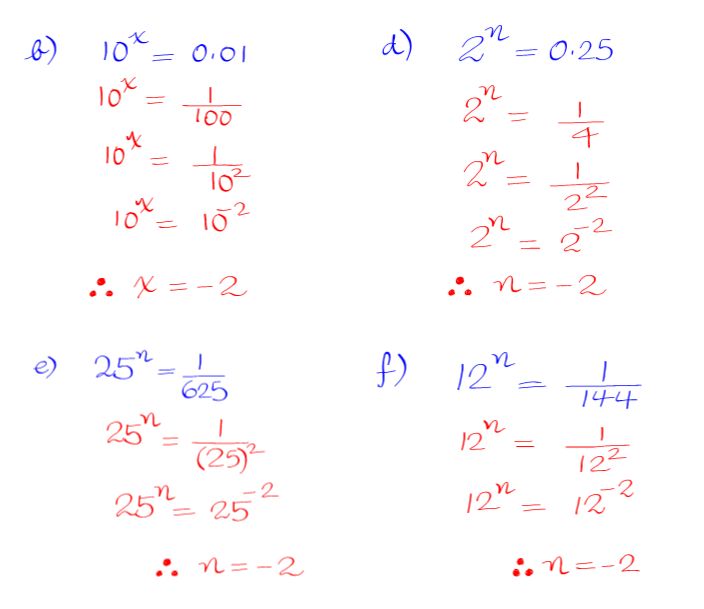 b) 10^x = 0.01
10^x = 1/100
10^x = 1/10^2
10^x = 10^-2
∴ x = -2
d) 2^n = 0.25
2^n = 1/4
2^n = 1/2^2
2^n = 2^-2
∴ n = -2
e) 25^n = 1/625
25^n = 1/(25)^2
25^n = 25^-2
∴ n = -2
f) 12^n = 1/144
12^n = 1/12^2
12^n = 12^-2
∴ n = -2